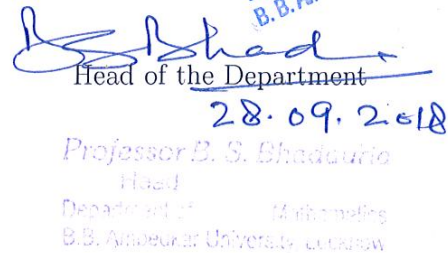 B.B.
BSBhad
Head of the Department
28.09.2018
Professor B. S. Bhadauria
Head
Department of Mathematics
B.B. Ambedkar University, Lucknow